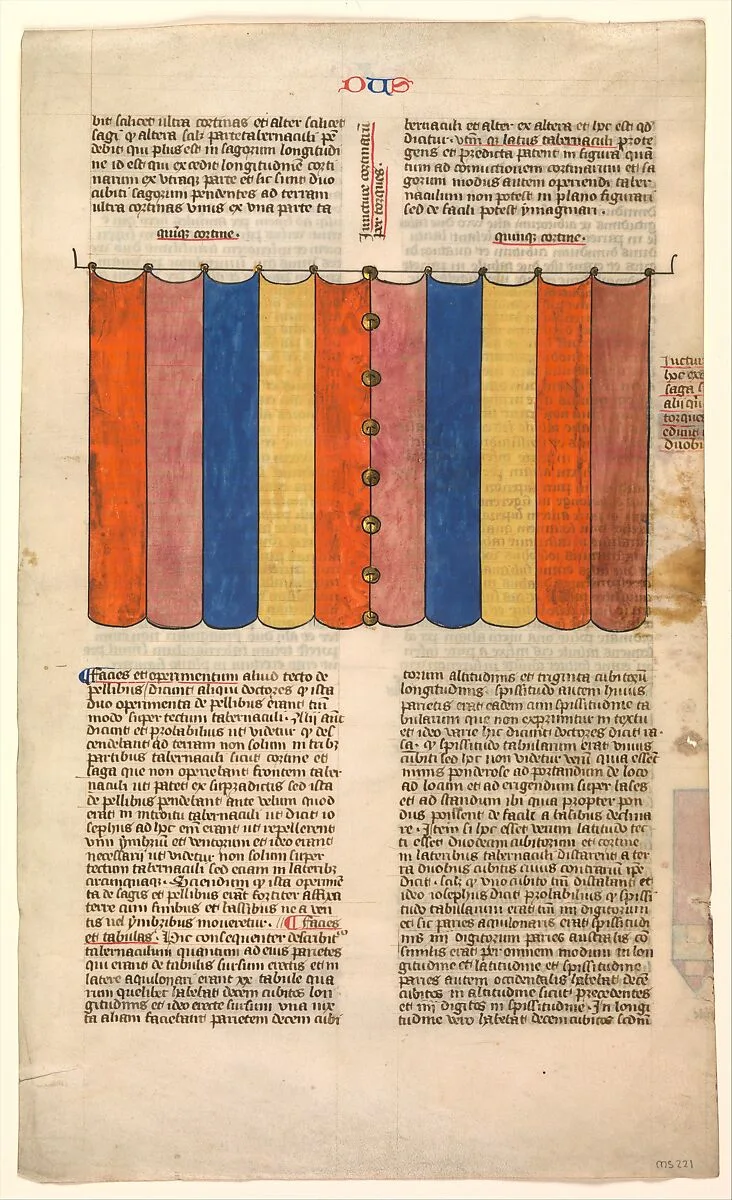 DUS
bit scilicet ultra cortinas et alter scilicet
sagi qͥ altera scilꝫ parte tabernaculi pẽ
debit qui plus est in sagorum longitudi
ne id est qui excedit longitudinẽ corti
narum ex utraqꝫ parte et sic sunt duo
cubiti sagorum pendentes ad terram
ultra cortinas vnus ex vna parte ta
quinqꝫ cortine.
Iuncture cortinarũ
per torques.
bernaculi et alter ex altera et hoc est qđ
dicitur. vtrũqꝫ latus tabernaculi prote
gens et predicta patent in figura quã
tum ad coniunctionem cortinarum et sa
gorum modus autem operiendi taber
naculum non potest in plano figurari
sed de facili potest ymaginari.
quinqꝫ cortine.
Iunctur
hoc exc
saga s
alii qui
torques
duobꝫ
Facies et operimentum aliud tecto de
pellibus / dicunt aliqui doctores qͥ ista
duo operimenta de pellibus erant uno
modo super tectum tabernaculi. Alii autẽ
dicunt et probabilius ut videtur qͥ des
cendebant ad terram non solum in tribꝫ
partibus tabernaculi sicut cortine et
saga que non operiebant frontem taber
naculi ut patet ex supradictis sed ista
de pellibus pendebant ante velum quod
erat in introitu tabernaculi ut dicit io
sephus ad hoc enim erant ut repellerent
vim ymbrium et ventorum et ideo erant
necessarij ut videtur non solum super
tectum tabernaculi sed eciam in lateribꝫ
circumquaqꝫ. Sciendum qͥ ista operimẽ
ta de sagis et pellibus erãt fortiter affixa
terre cum funibus et
tis vel ymbribus moueretur. // ¶ facies
et tabulas. Hic consequenter describit
tabernaculum quantum ad eius parietes
qui erant de tabulis sursum erectis et in
latere aquilonari erant xx tabule qua
rum quelibet habebat decem cubitos lon
gitudinis et ideo erecte sursum vna iuxͣ
ta aliam faciebant parietem decem cubi
torum altitudinis et triginta cubitorũ
longitudinis. spissitudo autem huius
parietis erat eadem cum spissitudine ta
bularum que non exprimitur in textu
et ideo varie hic dicunt doctores dicit ra.
sa. qͥ spissitudo tabularum erat vnius
cubiti sed hoc non videtur verũ quia essẽt
nimis ponderose ad portandum de loco
ad locum et ad erigendum super bases
et ad standum ibi quia propter pon
dus possent de facili a basibus declina
re. Item si hoc esset verum latitudo tec
ti esset duodecim cubitorum et cortine
in lateribus tabernaculi distarent a ter
ra duobus cubitis cuius contrarium ipẽ
dicit. scilꝫ qͥ vno cubito tm̃ distabant et
ideo iosephus dicit probabilius qͥ spissi
tudo tabularum erat tm̃ iiij digitorum
et sic paries aquilonaris erat spissitudi
nis iiij digitorum paries australis cõ
similis erat per omnem modum in lon
gitudine et latitudine et spissitudine
paries autem occidentalis habebat decẽ
cubitos in altitudine sicut precedentes
et iiij digitos in spissitudine. In longi
tudine vero habebat decem cubitos secũ
MS 221